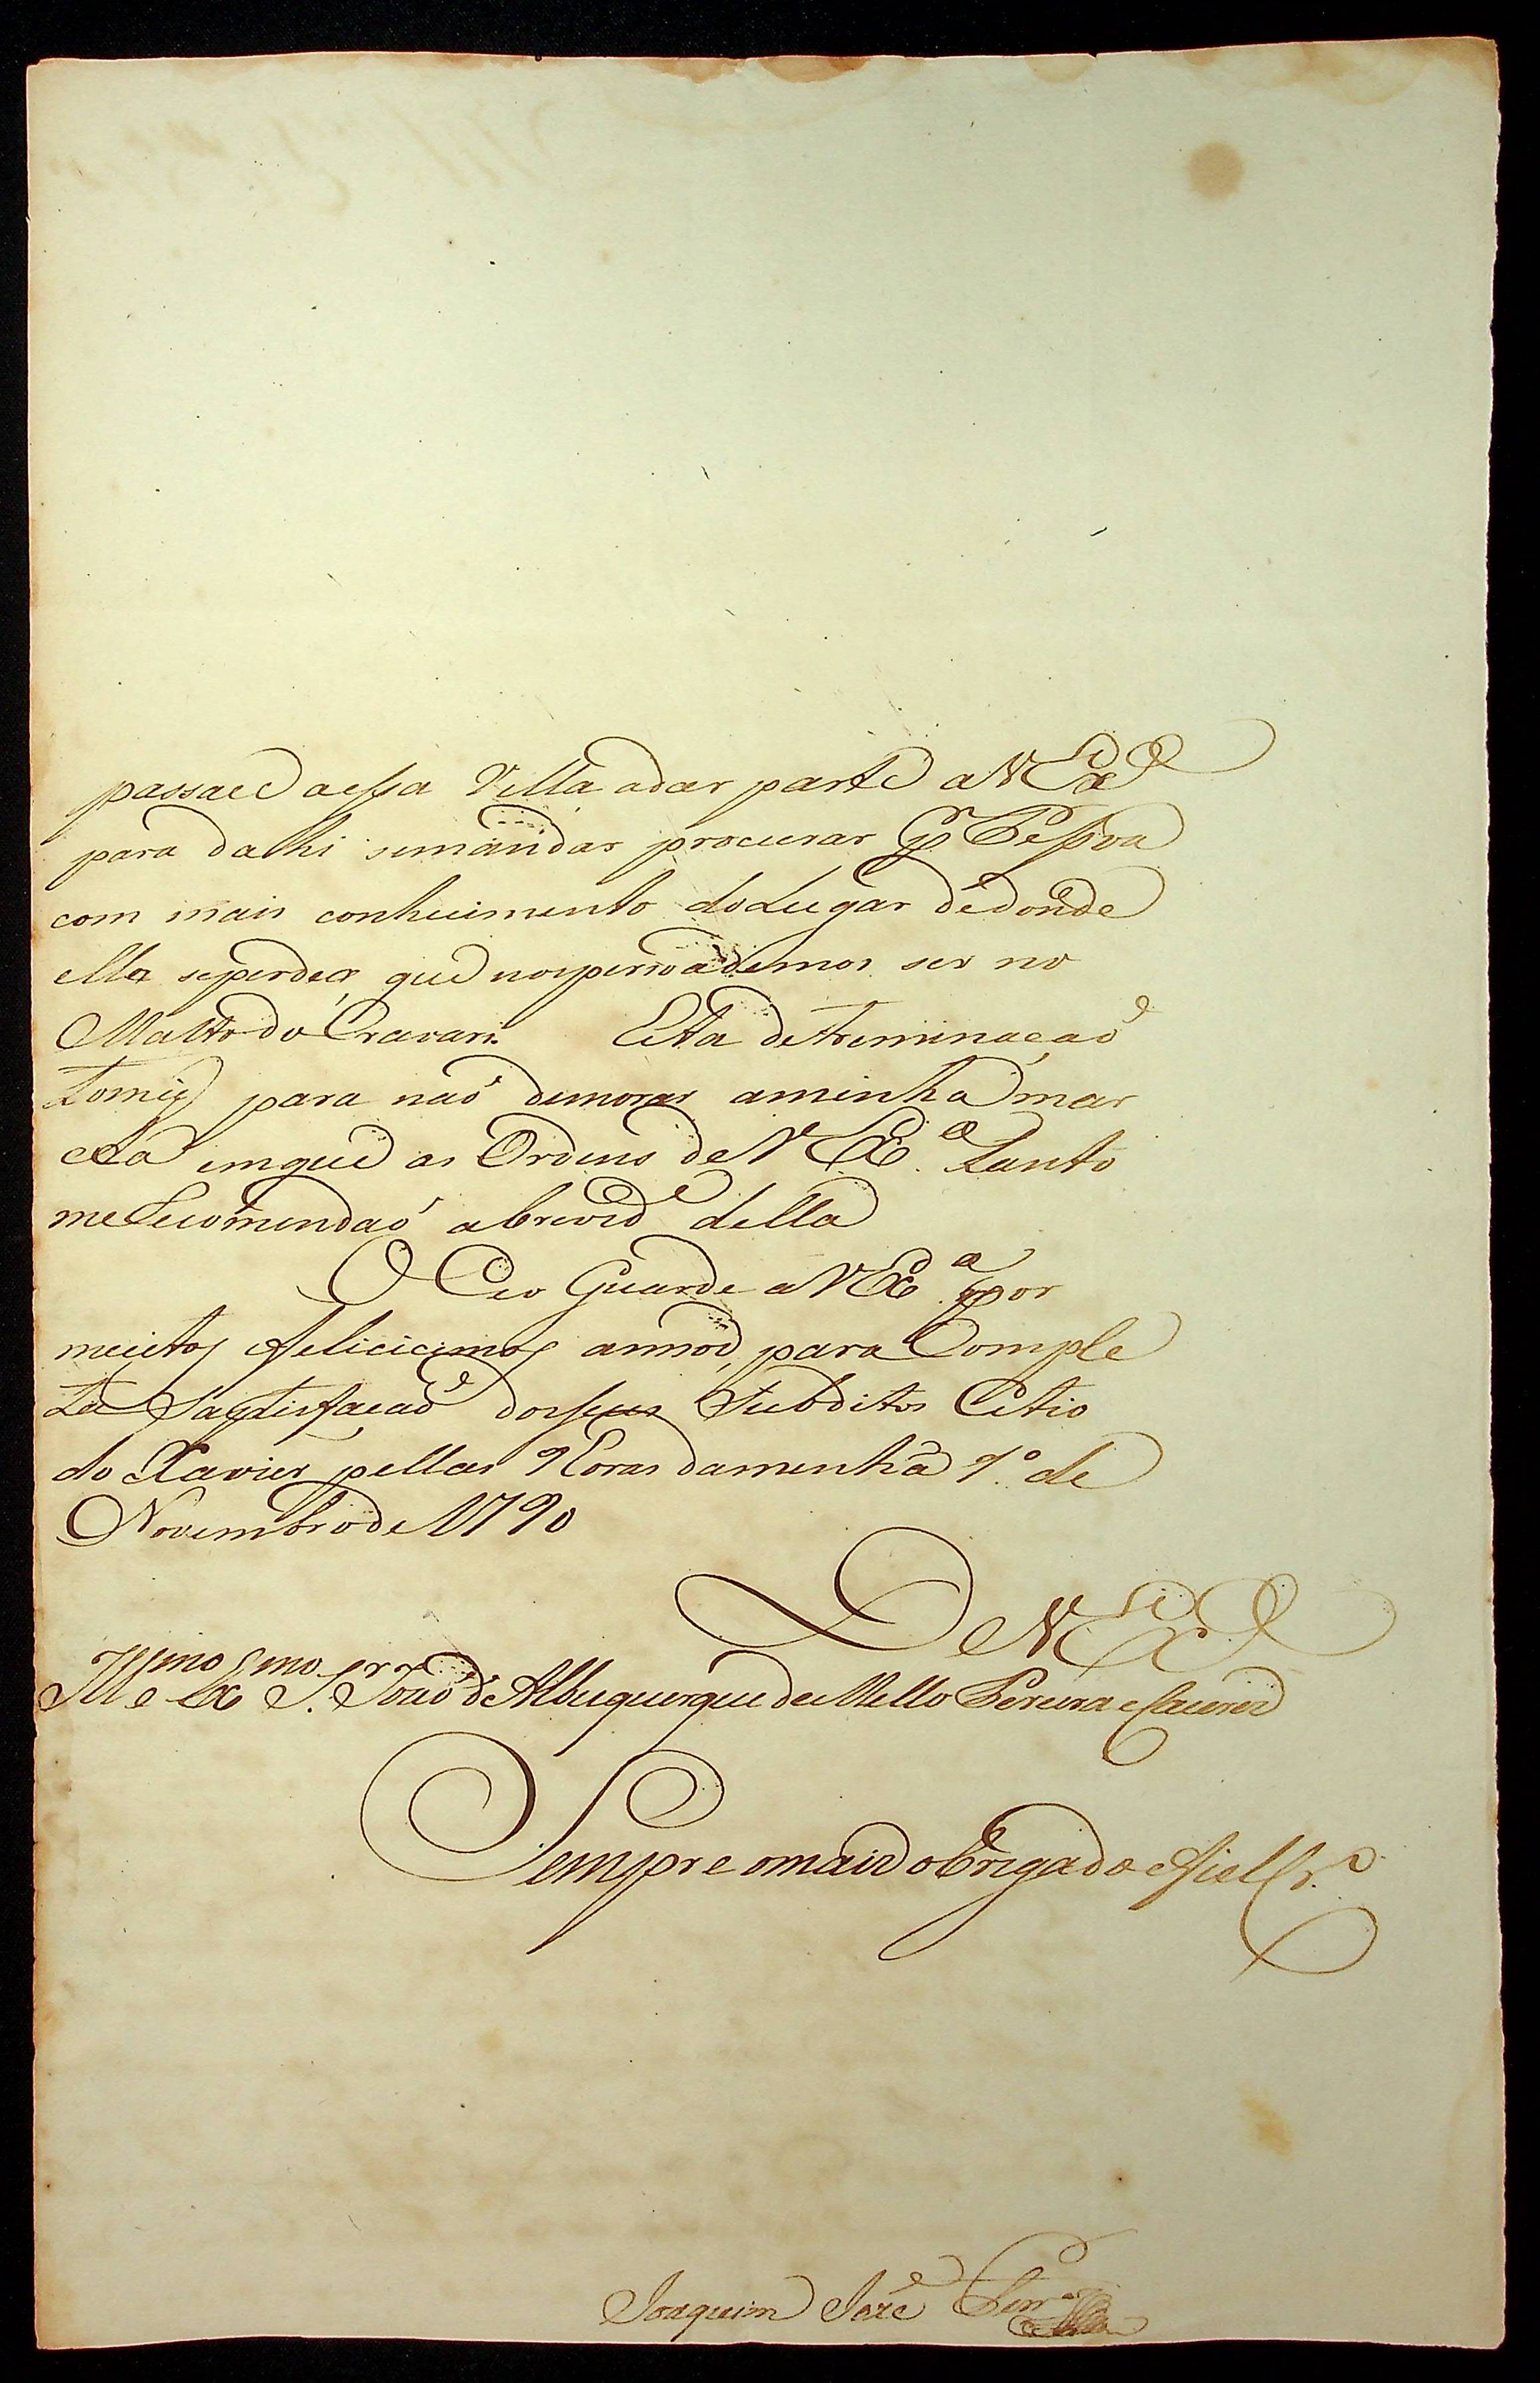 passace aessa Villa adar parte a V Ex.ª
para dalhi semandar procurar p.r Pessoa
com mais conhecimento do Lugar dedonde
ella seperdeo, que nospersoademos ser no
Matto do Cravari. Esta detreminaçaõ
tomey para naõ demorar aminha mar
cha emque as Ordens de V Ex.ª tanto
me Recomendaõ abrevid.e della
O Ceo Guarde a V Ex.ª por
muitos felicicimos annos, para Comple
ta Sastisfacaõ dosseus Subditos Citio
do Xavier pellas 9 Horas damenhã 1.º de
Novembro de 1790
De V Ex.ª
Ill.mo e Ex.mo S.r Joaõ de Albuquerque de Mello Pereira e Caceres
Sempre omais obrigado e fiel Cr.º
Joaquim Joze Ferr.ª